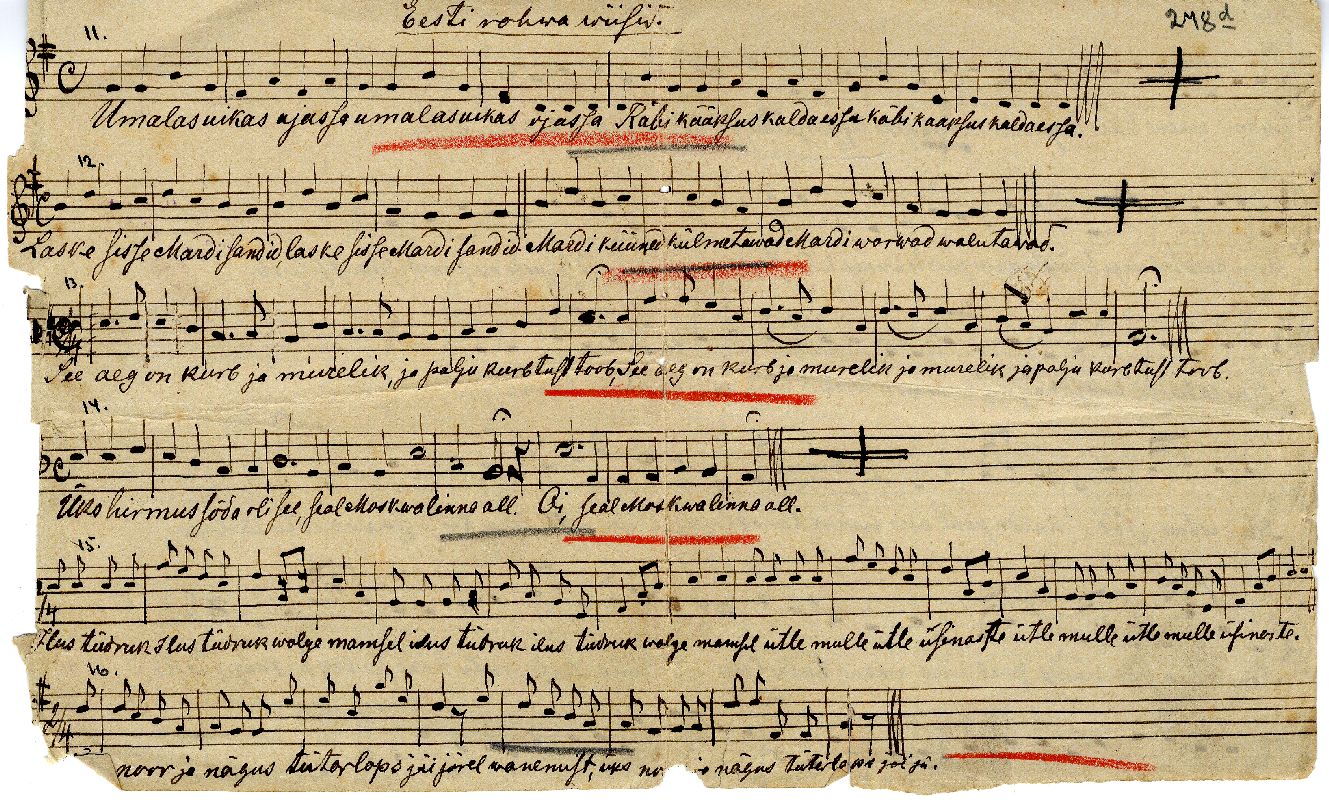 Eesti rohwa wiisid.
278d
11.
Umalas uikas ajassa umalas uikas ojassa Käbi kääksus kaldaessa käbi kääksus kaldaessa.
12.
Laske sisse Mardi sandid, laske sisse Mardi sandid Mardi küüned külmetawad Mardi warwad walutawad.
13.
See aeg on kurb ja murelik, ja palju kurbtust toob, See aeg on kurb ja murelik ja murelik ja palju kurbtust toob.
14.
Üks hirmus sõda oli see, seal Moskwa linna all. Oi, seal Moskwa linna all.
15.
Ilus tüdruk Ilus tüdruk walge mamsel ilus tüdruk ilus tüdruk walge mamsel ütle mulle ütle üsinaste ütle mulle ütle mulle üsinaste.
16.
2/4
noor ja nägus tütarlaps jäi järel wanemist, üks ja nägus tütarlaps jäi jä.